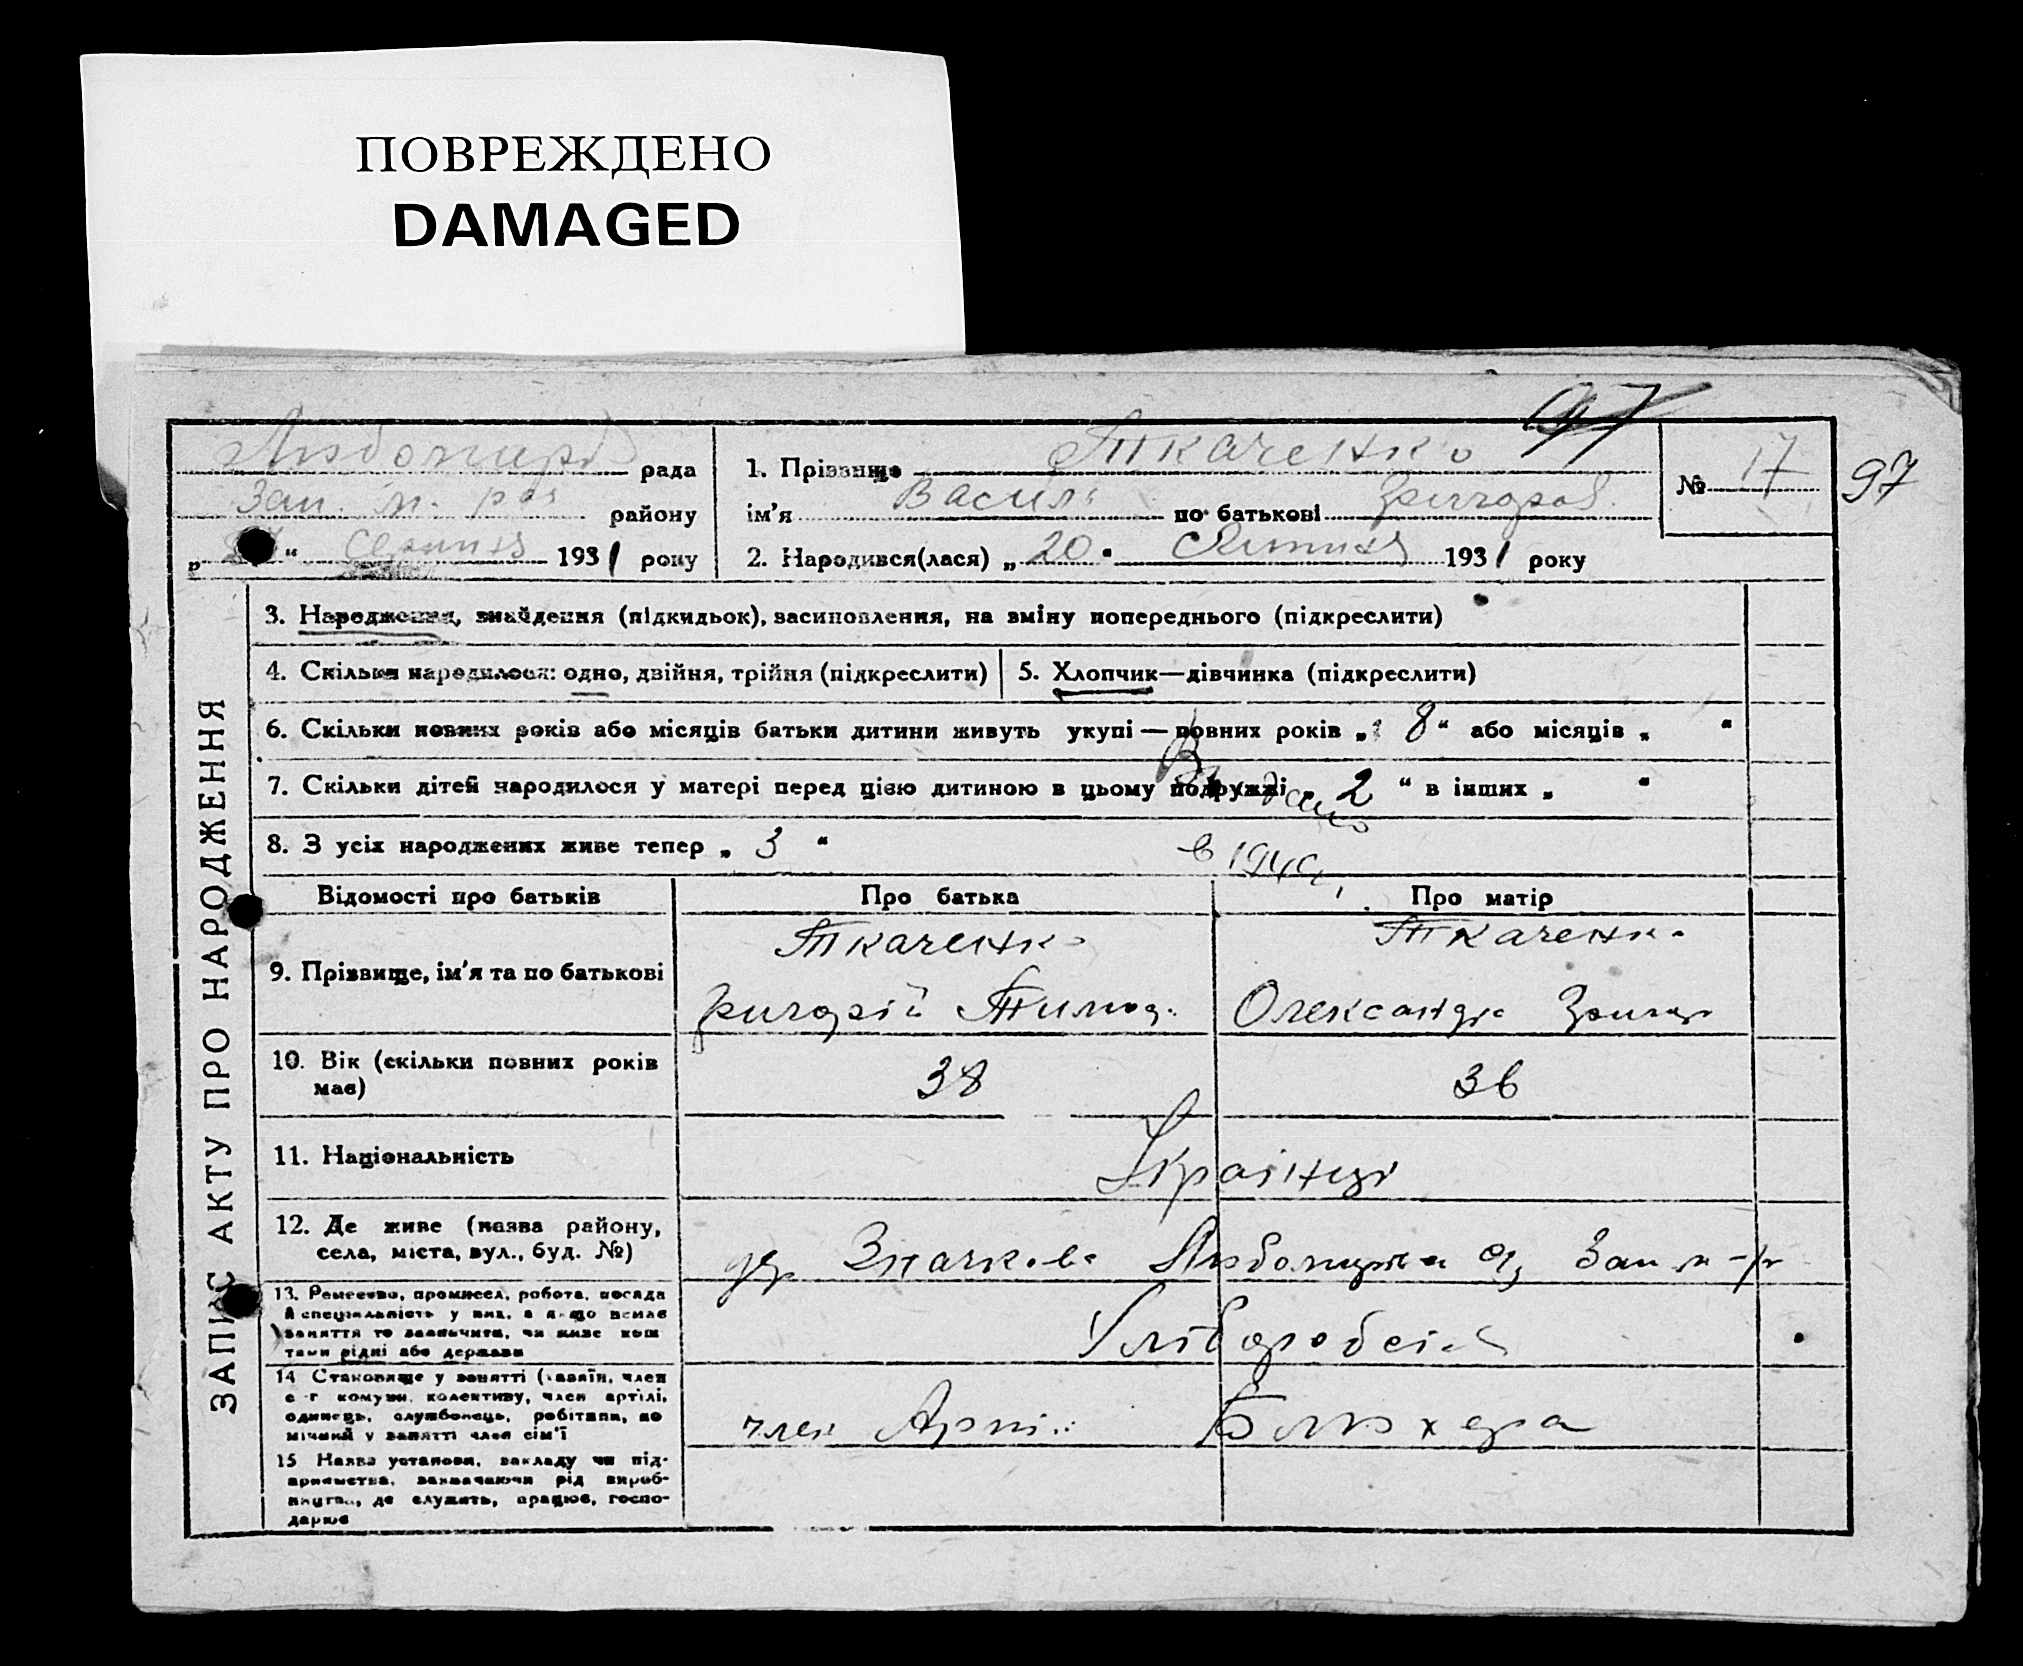 ПОВРЕЖДЕНО
DAMAGED
97
97
рада
Зап. м. р-н району
„ “ Серпня 1931 року
1. Прізвище Ткаченко
ім’я Василь по батькові Григоров.
№ 17
2. Народився(лася) „20“ Липня 1931 року
ЗАПИС АКТУ ПРО НАРОДЖЕННЯ
3. Народження, знайдення (підкидьок), засиновлення, на зміну попереднього (підкреслити)
4. Скільки народилося: одно, двійня, трійня (підкреслити)
5. Хлопчик—дівчинка (підкреслити)
6. Скільки повних років або місяців батьки дитини живуть укупі — повних років „ 8“ або місяців „ “
7. Скільки дітей народилося у матері перед цією дитиною в цьому подружжі „ 2 “ в інших „ “
Видано
8. З усіх народжених живе тепер „ 3 “
в 194
Відомості про батьків
Про батька
Про матір
9. Прізвище, ім’я та по батькові
Ткаченко
Григорій Тимоф.
Ткаченко
Олександра
10. Вік (скільки повних років
має)
38
36
11. Національність
Українці
12. Де живе (назва району,
села, міста, вул., буд. №)
Зап м р-н
13. Ремесство, промисел, робота, посада
й спеціяльність у них, а якщо немає
заняття то зазначити, чи живе кош
тами рідні або держави
Хліборобсів
14 Становище у занятті (хазяїн, член
с-г комуни, колективу, член артілі,
одинець, службовець, робітник, по
мічний у занятті член сім’ї
член Артіл
Блюхера
15 Назва установи, закладу чи під-
приємства, зазначаючи рід вироб-
ництва, де служить, працює, госпо-
дарює